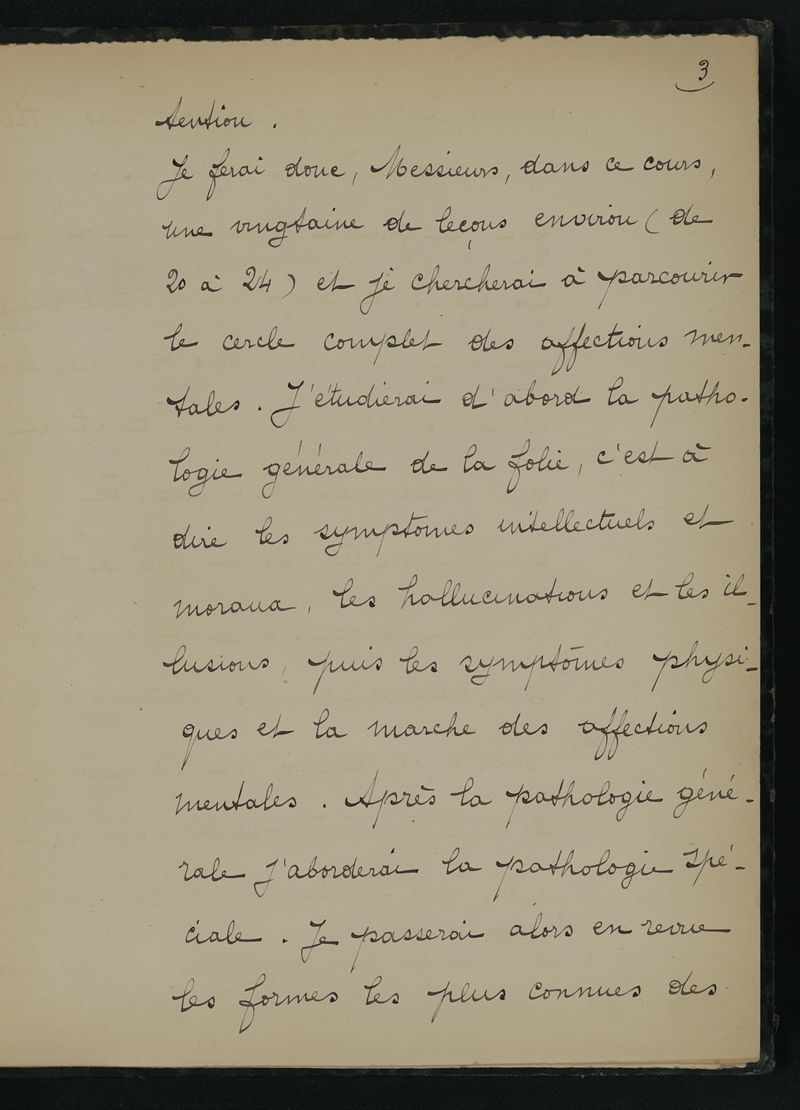 3
tention .
Je ferai donc, Messieurs, dans ce cours,
une vingtaine de leçons environ ( de
20 à 24 ) et je chercherai à parcourir
le cercle complet des affections men-
tales . J'étudierai d'abord la patho-
logie générale de la folie, c'est à
dire les symptomes intellectuels et
moraux, les hallucinations et les il-
lusions, puis les symptômes physi-
ques et la marche des affections
mentales . Après la pathologie géné-
rale j'aborderai la pathologie spé-
ciale . Je passerai alors en revue
les formes les plus connues des